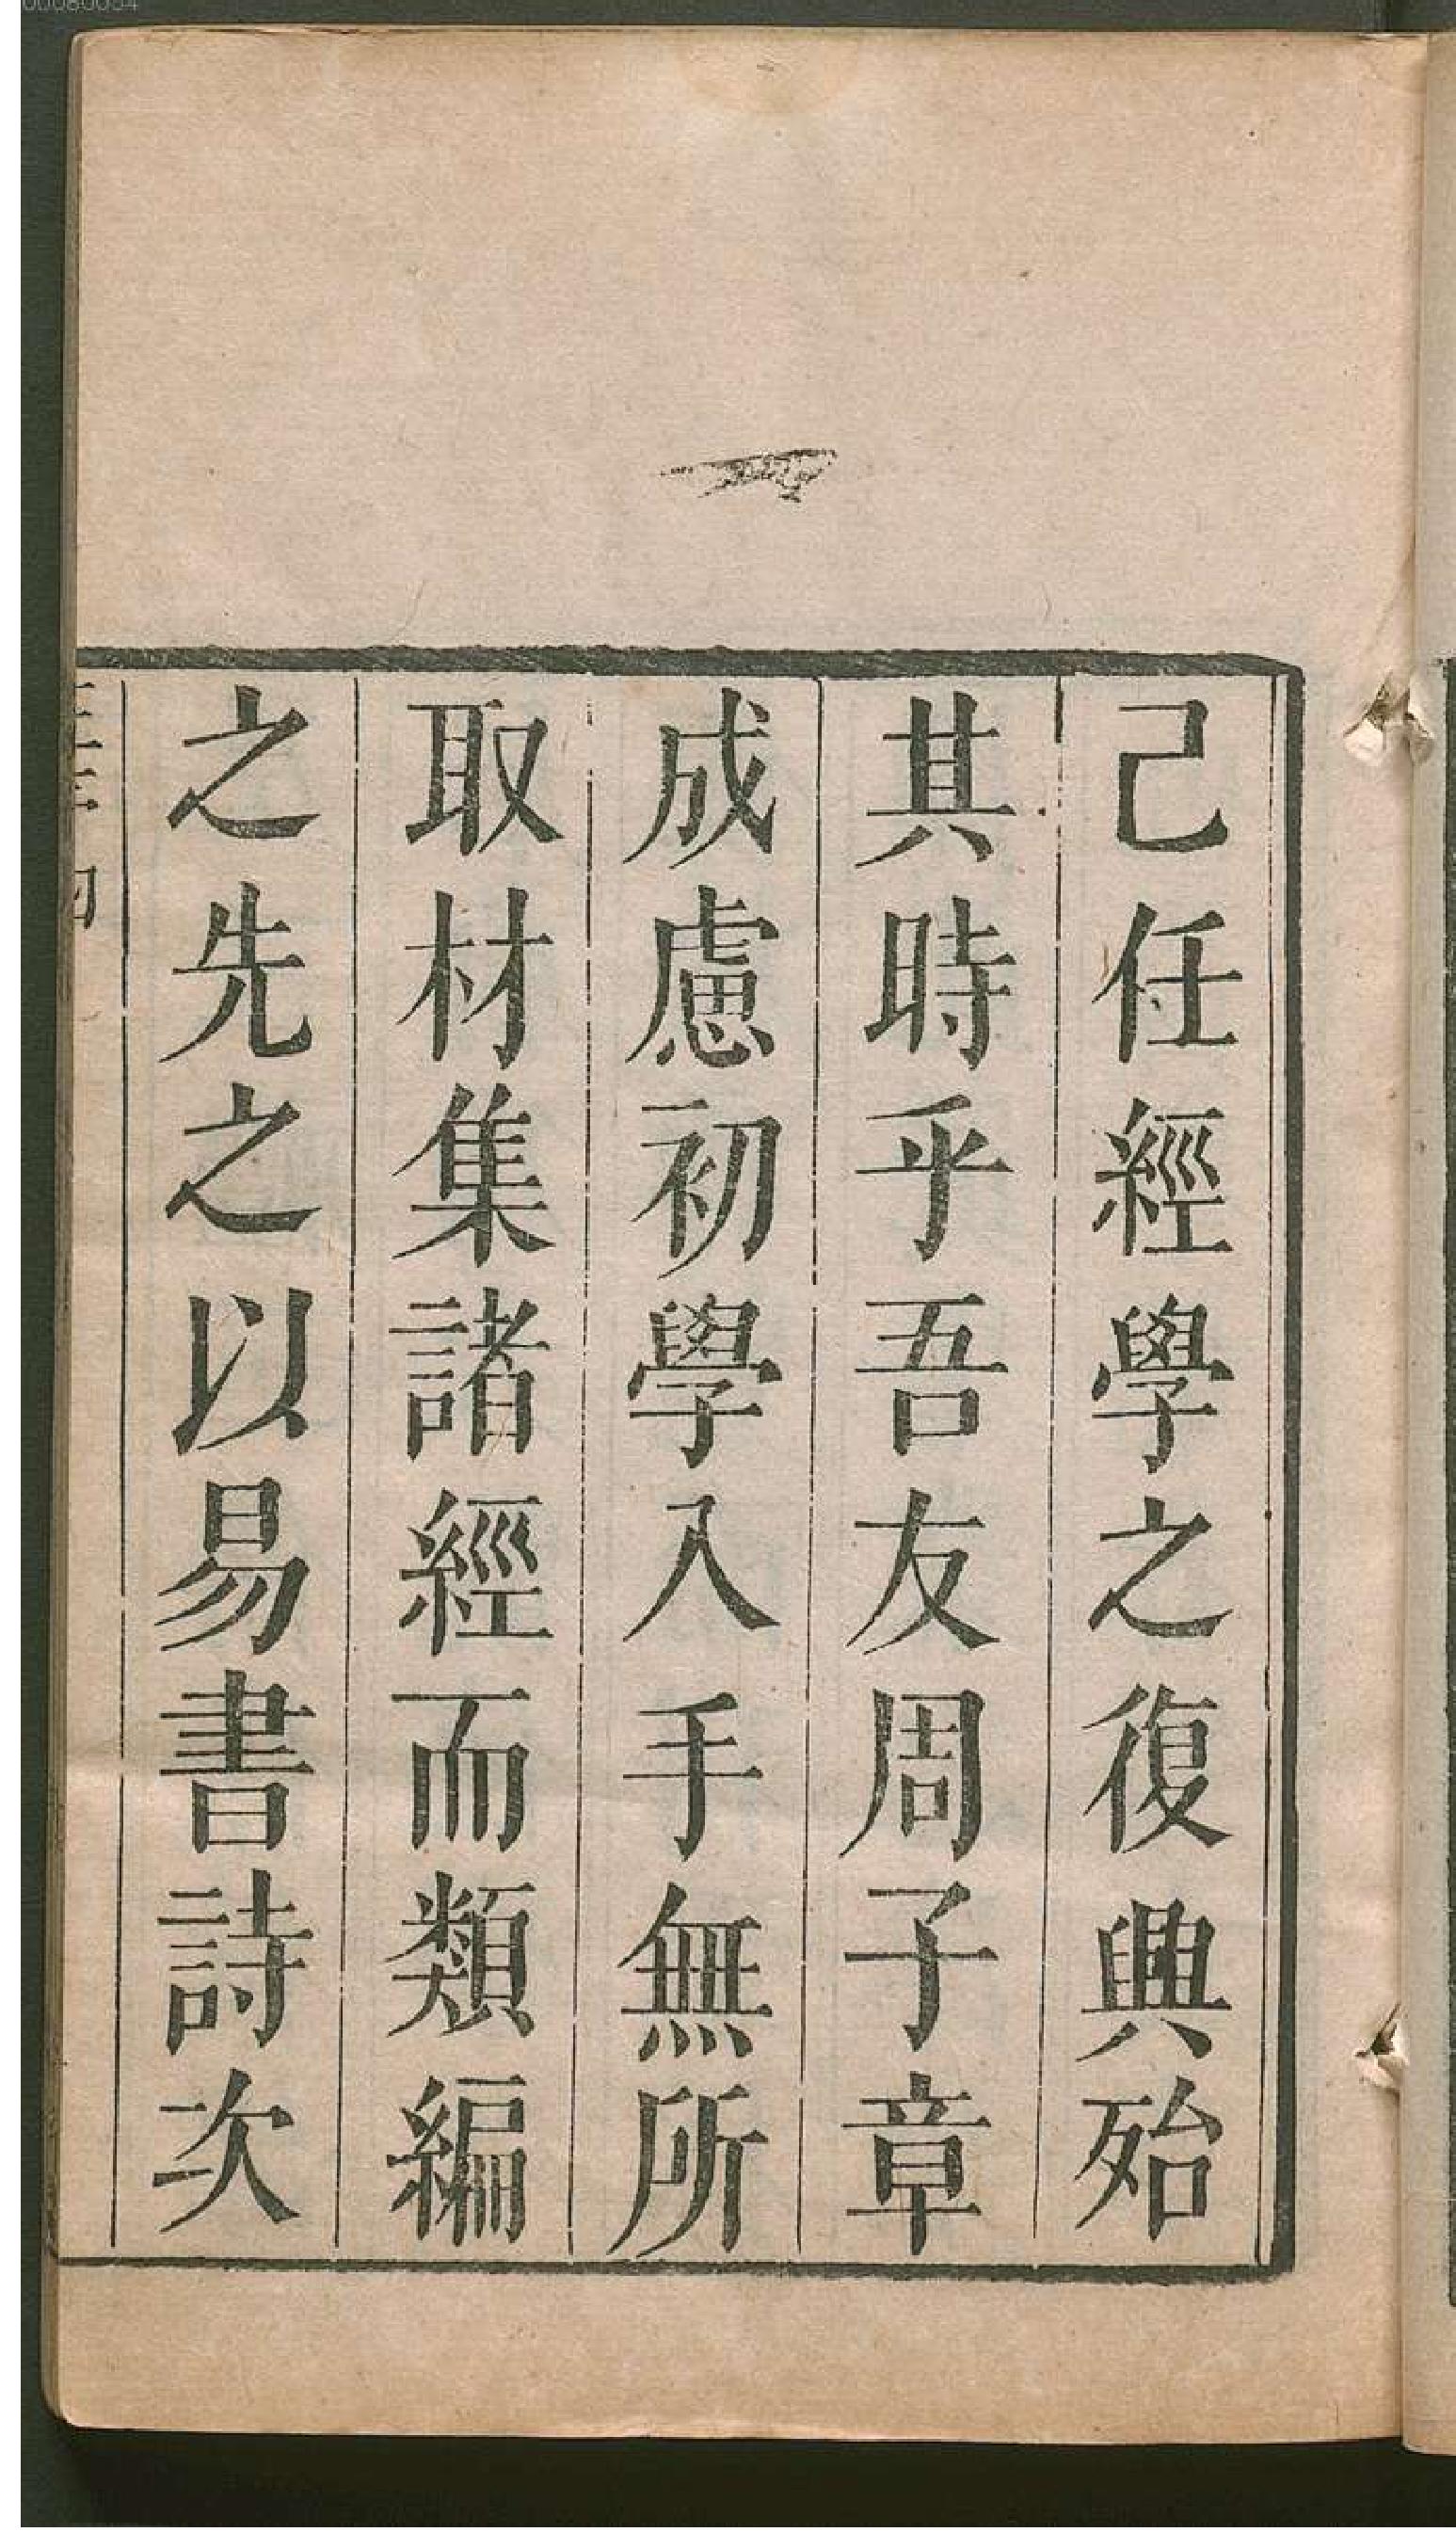 己任經學之復興殆
其時乎吾友周子章
成慮初學入手無所
取材集諸經而類編
之先之以易書詩次